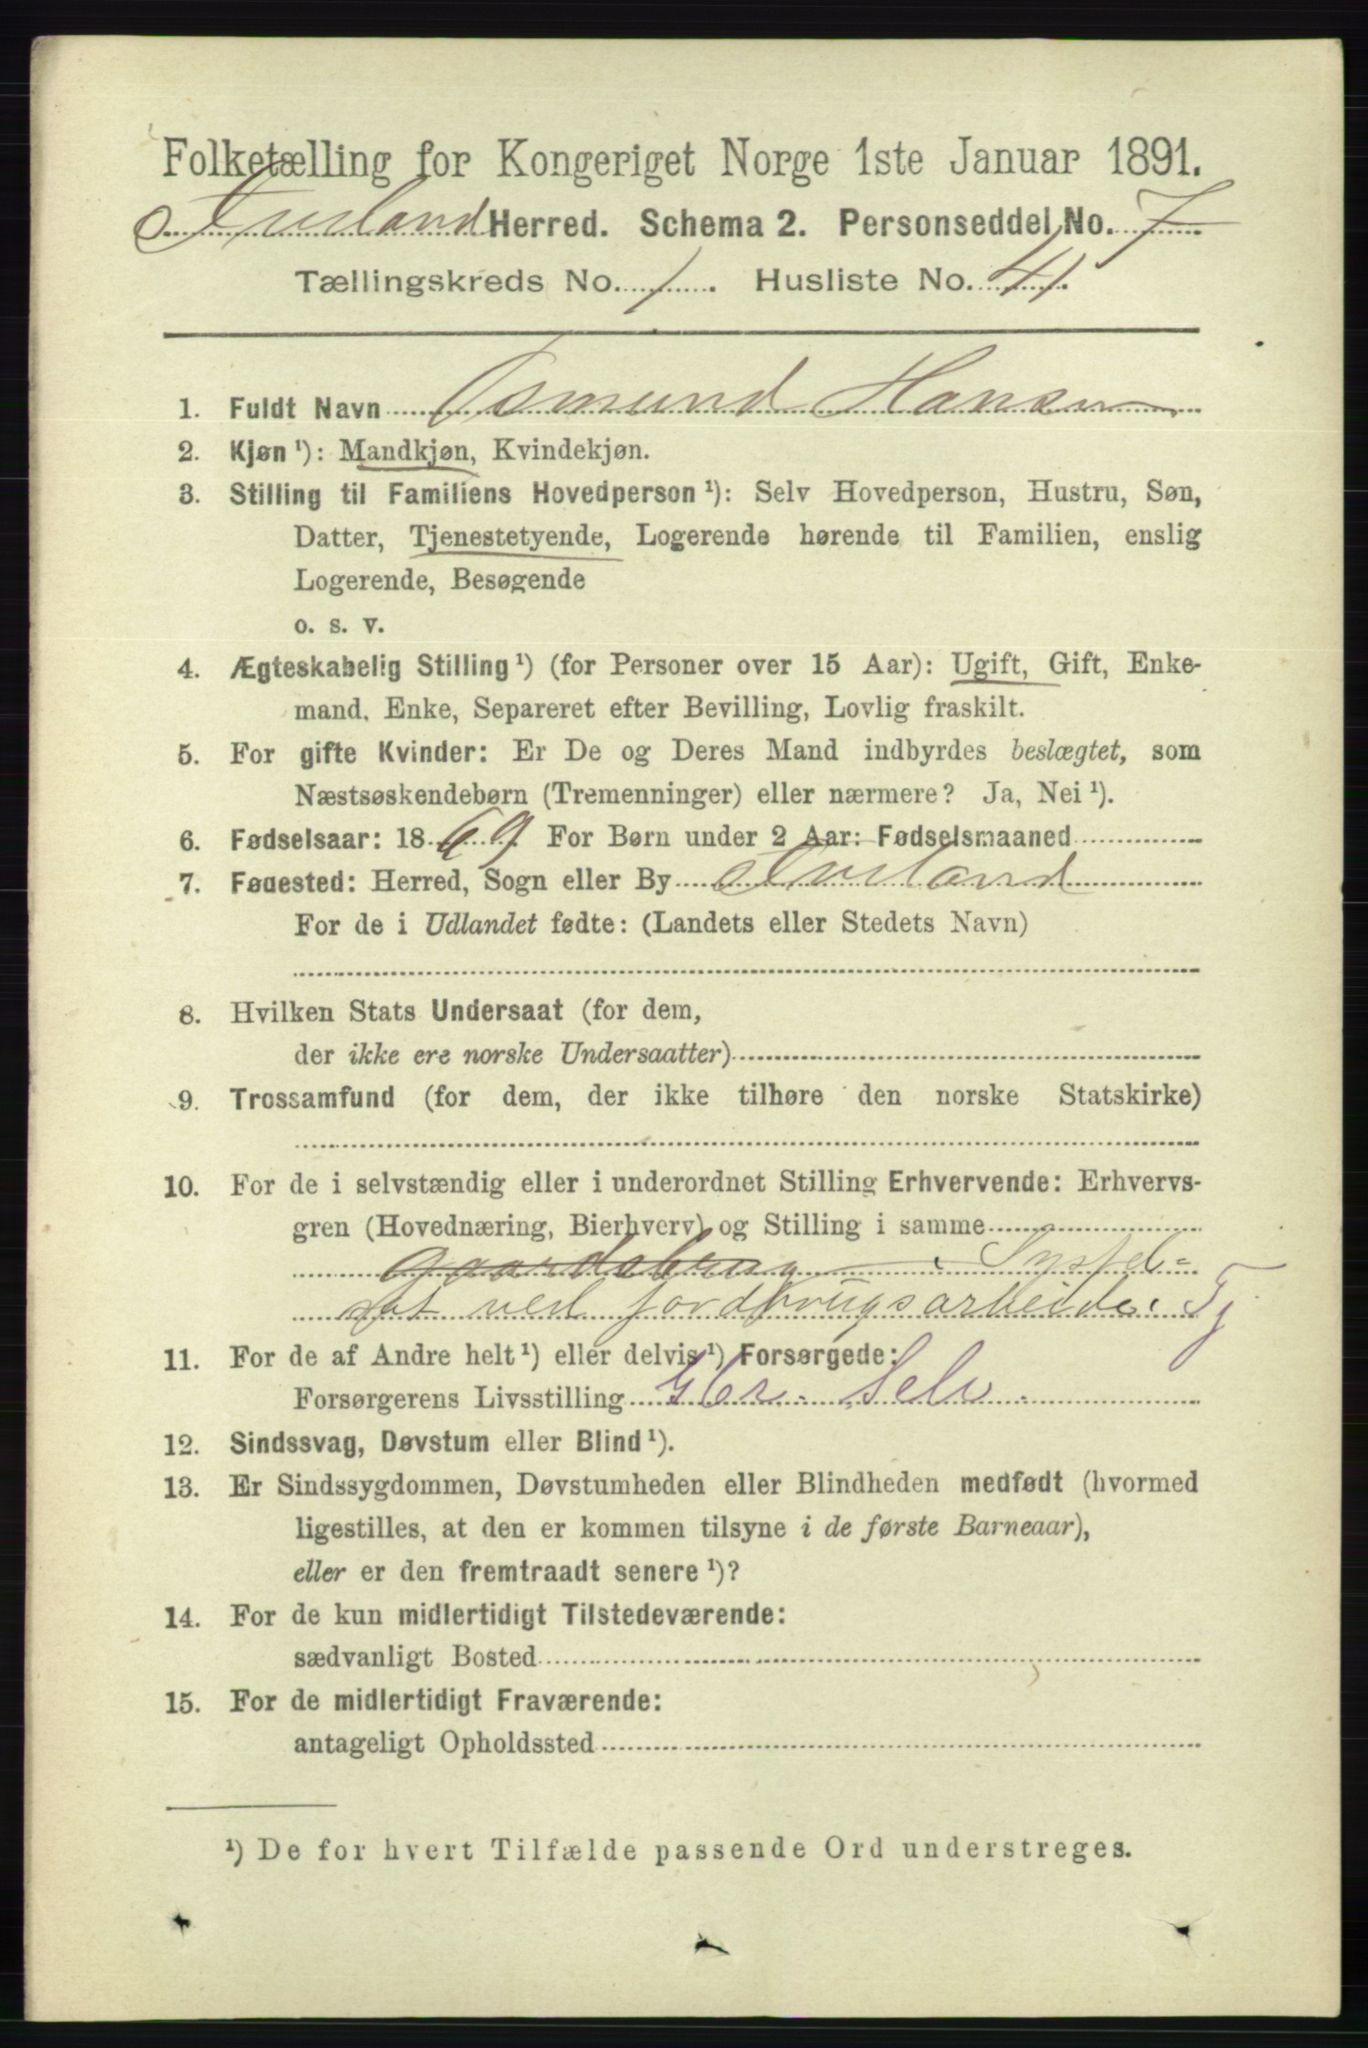 Folketælling for Kongeriget Norge 1ste Januar 1891.
Herred. Schema 2. Personseddel No. 7
Tællingskreds No. 1. Husliste No. 41.
1. Fuldt Navn Osmund Hansen
2. Kjøn ¹): Mandkjøn, Kvindekjøn.
3. Stilling til Familiens Hovedperson ¹): Selv Hovedperson, Hustru, Søn,
Datter, Tjenestetyende, Logerende hørende til Familien, enslig
Logerende, Besøgende
o. s. v.
4. Ægteskabelig Stilling ¹) (for Personer over 15 Aar): Ugift, Gift, Enke-
mand, Enke, Separeret efter Bevilling, Lovlig fraskilt.
5. For gifte Kvinder: Er De og Deres Mand indbyrdes beslægtet, som
Næstsøskendebørn (Tremenninger) eller nærmere? Ja, Nei ¹).
6. Fødselsaar: 1869 For Børn under 2 Aar: Fødselsmaaned
7. Fødested: Herred, Sogn eller By
For de i Udlandet fødte: (Landets eller Stedets Navn)
8. Hvilken Stats Undersaat (for dem,
der ikke ere norske Undersaatter)
9. Trossamfund (for dem, der ikke tilhøre den norske Statskirke)
10. For de i selvstændig eller i underordnet Stilling Erhvervende: Erhvervs-
gren (Hovednæring, Bierhverv) og Stilling i samme
Gaardsbrug. Syssel-
sat ved jordbrugsarbeide. Tj
11. For de af Andre helt ¹) eller delvis ¹) Forsørgede:
Forsørgerens Livsstilling Selv.
12. Sindssvag, Døvstum eller Blind ¹).
13. Er Sindssygdommen, Døvstumheden eller Blindheden medfødt (hvormed
ligestilles, at den er kommen tilsyne i de første Barneaar),
eller er den fremtraadt senere ¹)?
14. For de kun midlertidigt Tilstedeværende:
sædvanligt Bosted
15. For de midlertidigt Fraværende:
antageligt Opholdssted
¹) De for hvert Tilfælde passende Ord understreges.